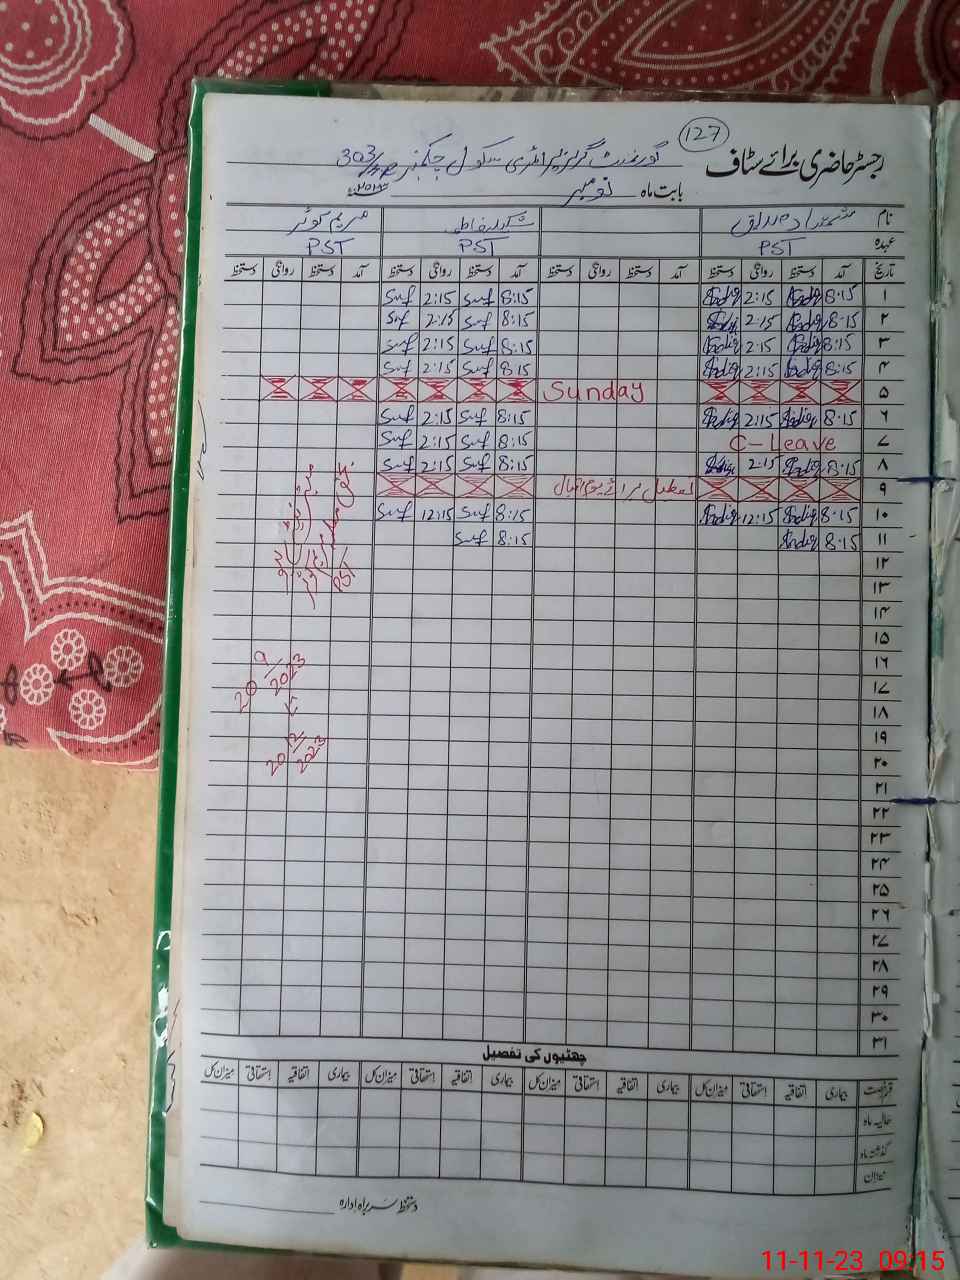 127
رجسٹر حاضری برائے سٹاف
گورنمنٹ گرلز پرائمری سکول چک نمبر 303
بابت ماہ نومبر
نام شمشاد صادق شکیلہ فاطمہ مریم کوثر
عہدہ PST PST PST
تاریخ آمد دستخط روانگی دستخط آمد دستخط روانگی دستخط آمد دستخط روانگی دستخط آمد دستخط روانگی دستخط
۱ 8:15 Sadiq 2:15 Sadiq 8:15 Suf 2:15 Suf
۲ 8:15 Sadiq 2:15 Sadiq 8:15 Suf 2:15 Suf
۳ 8:15 Sadiq 2:15 Sadiq 8:15 Suf 2:15 Suf
۴ 8:15 Sadiq 2:15 Sadiq 8:15 Suf 2:15 Suf
۵ Sunday
۶ 8:15 Sadiq 2:15 Sadiq 8:15 Suf 2:15 Suf
۷ C-Leave 8:15 Suf 2:15 Suf
۸ 8:15 Sadiq 2:15 Sadiq 8:15 Suf 2:15 Suf
۹ تعطیل برائے یوم اقبال
۱۰ 8:15 Sadiq 12:15 Sadiq 8:15 Suf 12:15 Suf
۱۱ 8:15 Sadiq 8:15 Suf
۱۲
۱۳
۱۴
۱۵
۱۶
۱۷
۱۸
۱۹
۲۰
۲۱
۲۲
۲۳
۲۴
۲۵
۲۶
۲۷
۲۸
۲۹
۳۰
۳۱
PST
20 9 2023
20 12 2023
چھٹیوں کی تفصیل
قسم رخصت بیماری اتفاقیہ استحقاقی میزان کل بیماری اتفاقیہ استحقاقی میزان کل بیماری اتفاقیہ استحقاقی میزان کل بیماری اتفاقیہ استحقاقی میزان کل
حالیہ ماہ
گذشتہ ماہ
میزان
دستخط سربراہ ادارہ
11-11-23 09:15